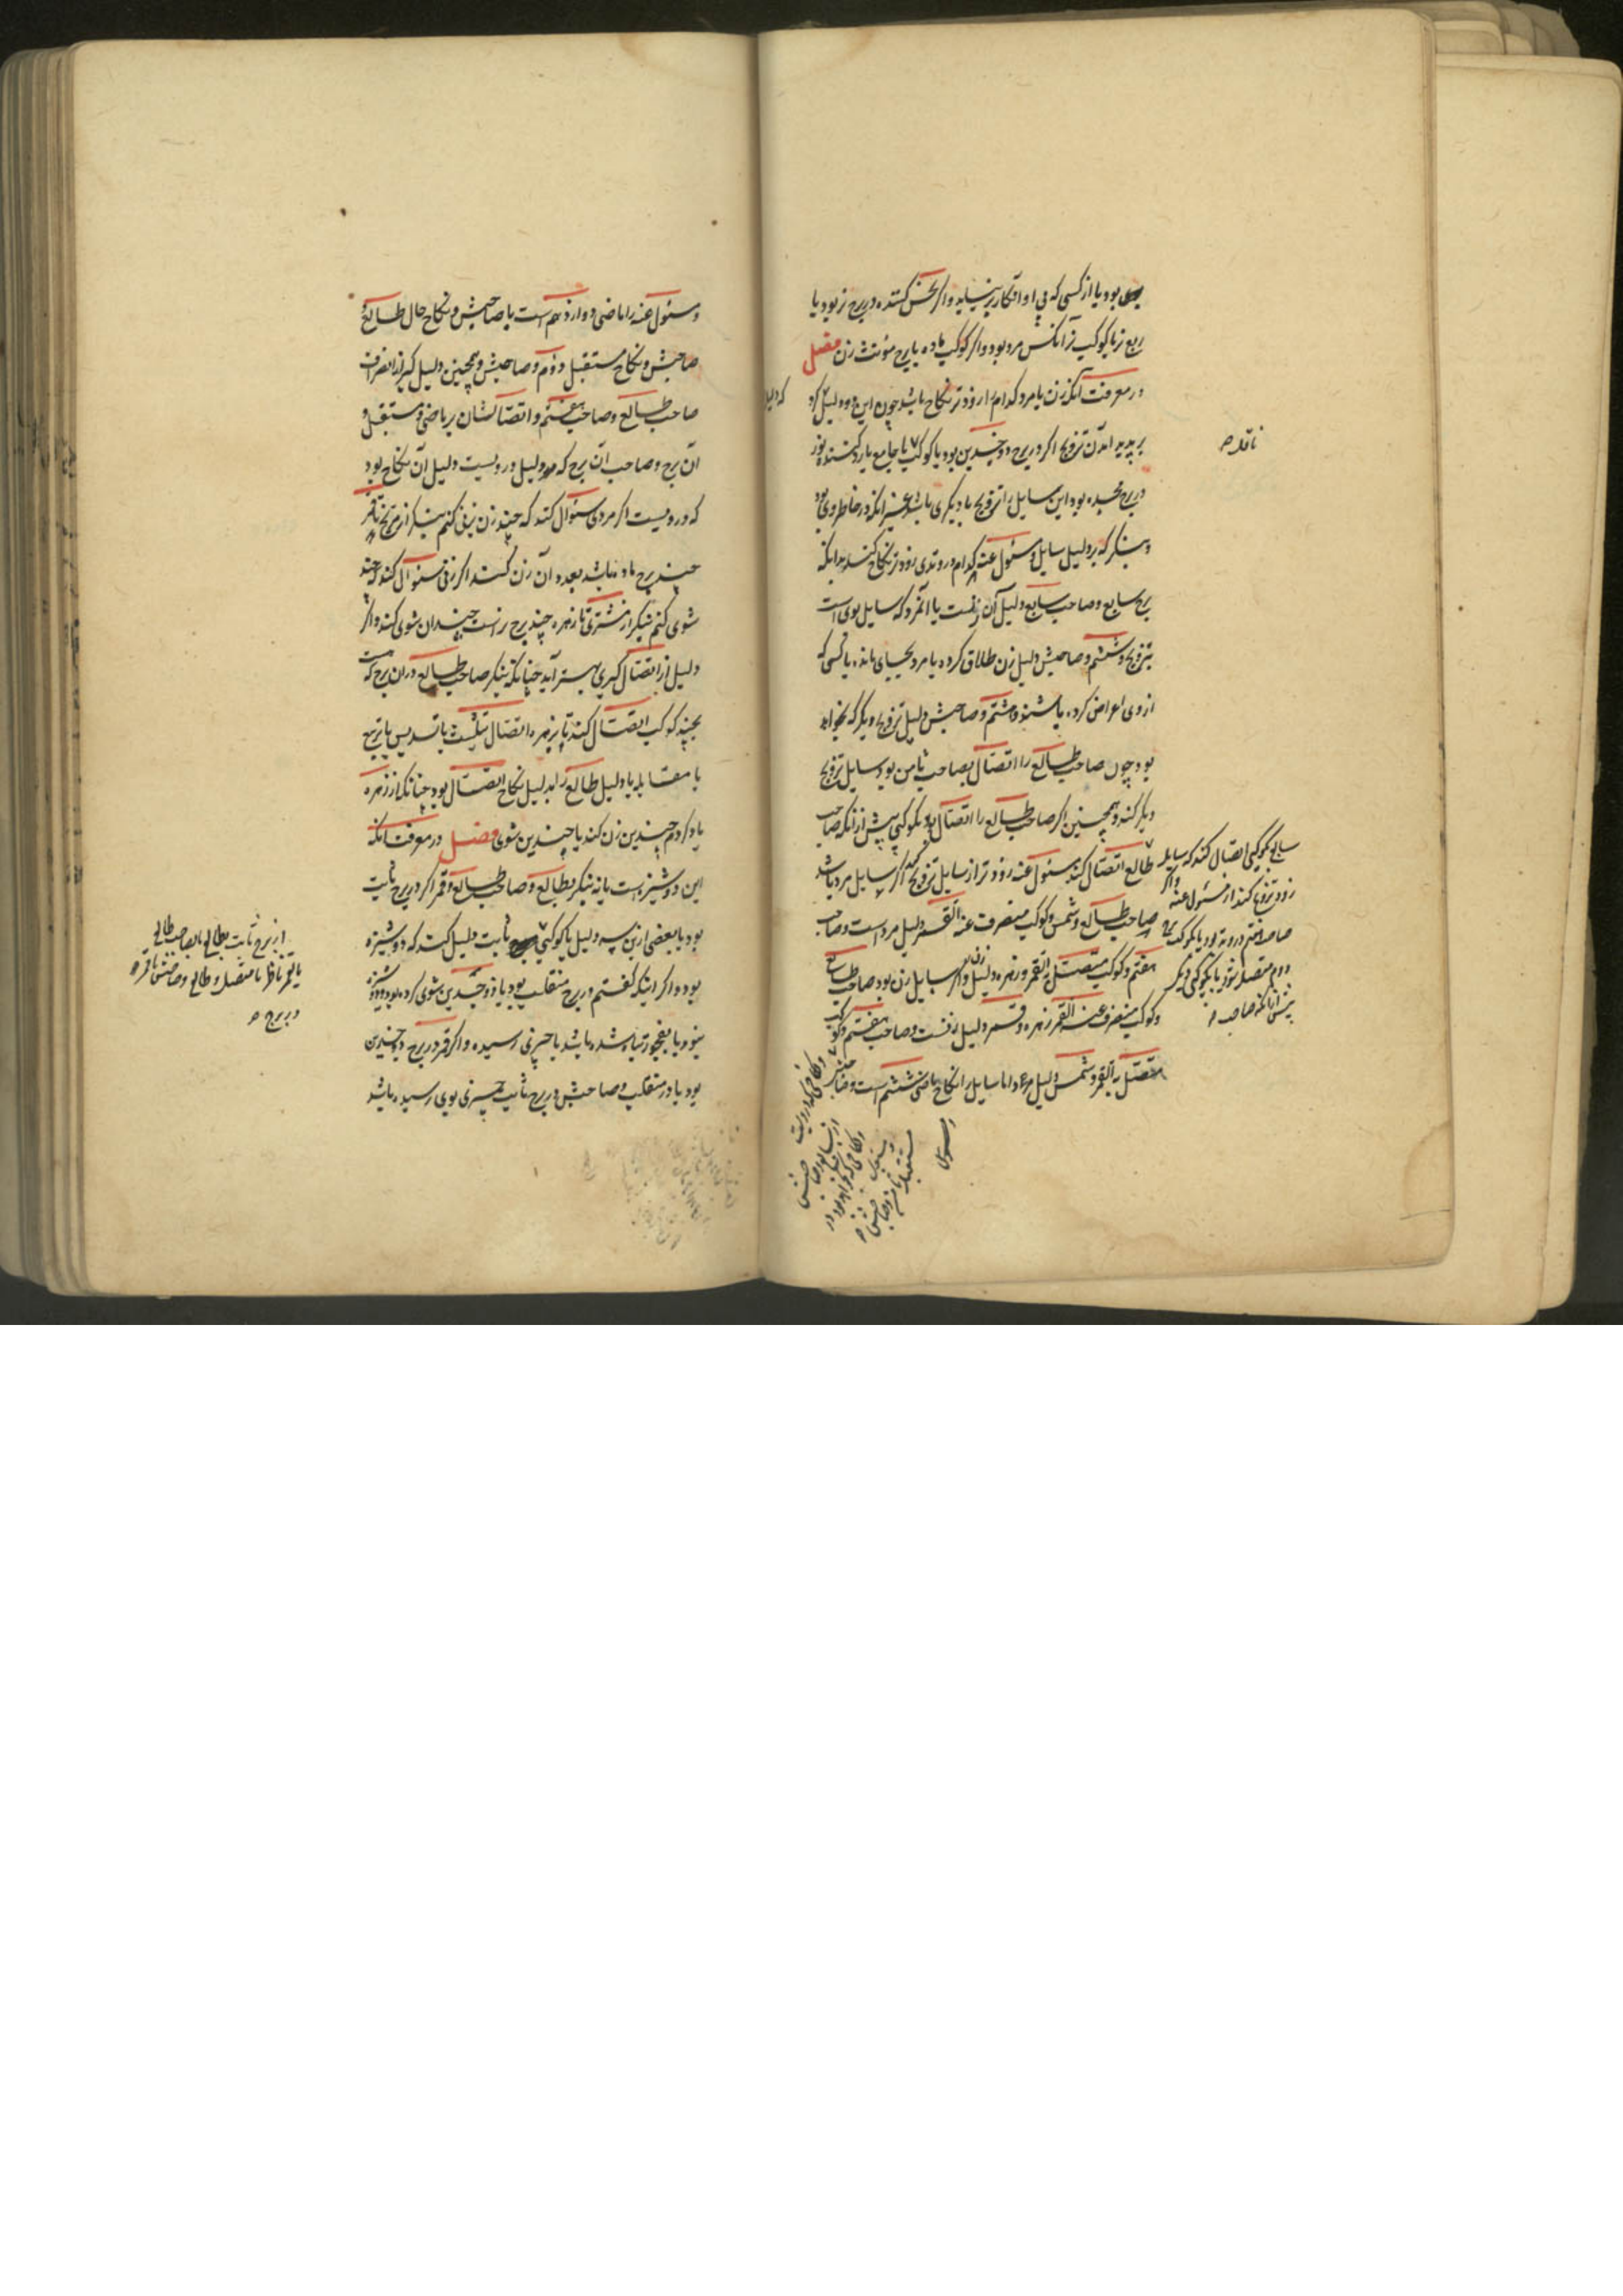 بود یا از کسی که بی او این کار بر نیاید و اگر نحس کننده در برج نر بود یا
ربع نر یا کوکب نر آنکس مرد بود و اگر کوکب ماده یا برج مؤنث زن فصل
در معرفت آنکه زن یا مرد کدام را زودتر نکاح باشد چون این دو دلیل کرد
بر پدید آمدن تزویج اگر در برج ذو جسدین بود یا کوکب یا جامع یا رد کننده نور
در برج مجسده بود این سایل را تزویج با دیگری باشد غیر آنکه در خاطر وی بود
و بنگر که بر دلیل سایل و مسئول عنه کدام در وتدی زودتر نکاح کند بدانکه
برج سابع و صاحب سابع دلیل آن زنست یا آن مرد که سایل بوی است
بتزویج و ششم و صاحبش دلیل زن طلاق کرده یا مرد بجای مانده یا کسی که
از وی اعراض کرده باشند و هشتم و صاحبش دلیل تزویج دیگر که بخواهد
بود چون صاحب طالع را اتصال بصاحب ثامن بود سایل تزویج
دیگر کند و همچنین اگر صاحب طالع را اتصال بود بکوکبی پیش از آنکه صاحب
طالع اتصال کند مسئول عنه زودتر از سایل تزویج کند اگر سایل مرد باشد
صاحب طالع و شمس و کوکب منصرف عنه القمر دلیل مرد است و صاحب
هفتم و کوکب متصل به القمر و زهره دلیل زن و اگر سایل زن بود صاحب طالع
و کوکب منصرف عنه القمر زهره و قمر دلیل زنست و صاحب هفتم و کوکب
متصل به القمر و شمس دلیل مرد و اما سایل را نکاح ماضی ششم است و صاحبش
سابع بکوکبی اتصال کند که سایل
زود تزویج کند از مسئول عنه و اگر
صاحب هفتم در وتد بود یا بکوکب
دوم متصل شود یا بکوکبی دیگر
پیش از آنکه صاحب
و مسئول عنه را ماضی دوازدهم است با صاحبش و نکاح حال طالع و
صاحبش و نکاح مستقبل دوم و صاحبش و همچنین دلیل گیر از انصراف
صاحب طالع و صاحب هفتم و اتصالشان بر ماضی و مستقبل و
آن برج و صاحب آن برج که دلیل در ویست دلیل آن نکاح بود
که در ویست اگر مردی سئوال کند که چند زن بزنی کنم بنگر از مریخ تا قمر
چند برج ماده باشد بعدد آن زن کند اگر زنی سئوال کند که چند
شوی کنم بنگر از مشتری تا زهره چند برج نر است چندان شوی کند و اگر
دلیل از اتصال گیری بهتر آید چنانکه بنگر صاحب طالع در آن برج که هست
بچند کوکب اتصال کند تا بزهره اتصال تثلیث یا تسدیس یا تربیع
یا مقابله یا دلیل طالع را بدلیل نکاح اتصال بود چنانکه از زهره
یاد کردم چندین زن کند یا چندین شوی فصل در معرفت آنکه
این دوشیزه است یا نه بنگر بطالع و صاحب طالع و قمر اگر در برج ثابت
بود یا بعضی ازین سه دلیل یا کوکبی ثابت دلیل کند که دوشیزه
بود و اگر اینکه گفتم در برج منقلب بود یا ذو جسدین شوی کرده بود و دوشیزه
نبود یا بفجور تباه شده باشد یا چیزی رسیده و اگر قمر در برج ذو جسدین
بود یا در منقلب و صاحبش در برج ثابت چیزی بوی رسیده باشد
از برج ثابت بطالع یا بصاحب طالع
یا بقمر ناظر یا متصل و طالع و صاحبش یا قمر
در برج